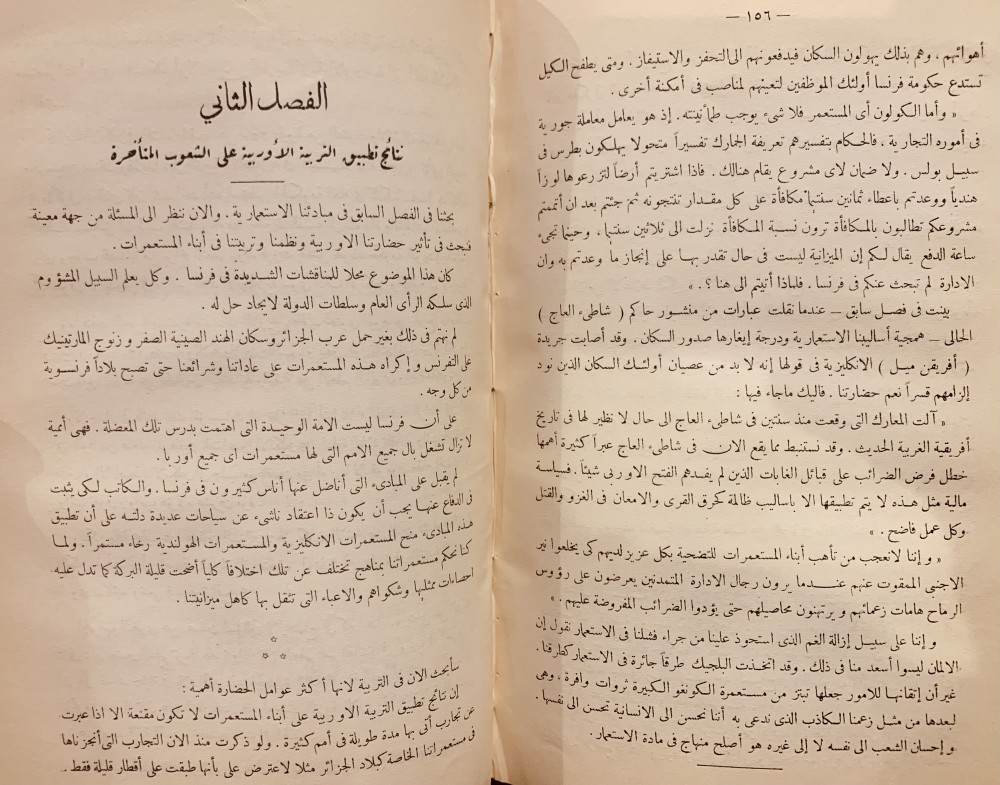 — ١٥٦ —
أهوائهم ، وهم بذلك يهولون السكان فيدفعونهم الى التحفز والاستيفاز . ومتى يطفح الكيل
تستدع حكومة فرنسا أولئك الموظفين لتعينهم لمناصب فى أمكنة أخرى .
« وأما الكولون أى المستعمر فلا شىء يوجب طمأنينته . إذ هو يعامل معاملة جورية
فى أموره التجارية ، فالحكام بتفسيرهم تعريفة الجمارك تفسيراً متحولا يهلكون بطرس فى
سبيل بولس . ولا ضمان لاى مشروع يقام هنالك . فاذا اشتريتم أرضاً لتزرعوها لوزاً
هندياً ووعدتم باعطاء ثمانين سنتيما مكافأة على كل مقدار تنتجونه ثم جئتم بعد ان أتممتم
مشروعكم تطالبون بالمكافأة ترون نسبة المكافأة نزلت الى ثلاثين سنتيما ، وحينما تجىء
ساعة الدفع يقال لكم إن الميزانية ليست فى حال تقدر بها على إنجاز ما وعدتم به وان
الادارة لم تبحث عنكم فى فرنسا . فلماذا أتيتم الى هنا ؟ . »
بينت فى فصل سابق — عندما نقلت عبارات من منشور حاكم ( شاطىء العاج )
الحالى — همجية أساليبنا الاستعمارية ودرجة إيغارها صدور السكان . وقد أصابت جريدة
( أفريقن ميل ) الانكليزية فى قولها إنه لا بد من عصيان أولئك السكان الذين نود
إلزامهم قسراً نعم حضارتنا . فاليك ماجاء فيها :
« آلت المعارك التى وقعت منذ سنتين فى شاطىء العاج الى حال لا نظير لها فى تاريخ
أفريقية الغربية الحديث . وقد نستنبط مما يقع الان فى شاطىء العاج عبراً كثيرة أهمها
خطل فرض الضرائب على قبائل الغابات الذين لم يفدهم الفتح الاوربى شيئاً . فسياسة
مالية مثل هذه لا يتم تطبيقها الا باساليب ظالمة كحرق القرى والامعان فى الغزو والقتل
وكل عمل فاضح . »
« وإننا لانعجب من تأهب أبناء المستعمرات للتضحية بكل عزيز لديهم كى يخلعوا نير
الاجنبى الممقوت عنهم عندما يرون رجال الادارة المتمدنين يعرضون على رؤوس
الرماح هامات زعمائهم ويرتهنون محاصيلهم حتى يؤدوا الضرائب المفروضة عليهم . »
وإننا على سبيل إزالة الغم الذى استحوذ علينا من جراء فشلنا فى الاستعمار نقول إن
الالمان ليسوا أسعد منا فى ذلك . وقد اتخذت البلجيك طرقاً جائرة فى الاستعمار كطرقنا .
غير أن إتقانها للامور جعلها تبتز من مستعمرة الكونغو الكبيرة ثروات وافرة ، وهى
لبعدها من مثل زعمنا الكاذب الذى ندعى به أننا نحسن الى الانسانية تحسن الى نفسها .
وإحسان الشعب الى نفسه لا إلى غيره هو أصلح منهاج فى مادة الاستعمار .
الفصل الثاني
نتائج تطبيق التربية الأوربية على الشعوب المتأخرة
بحثنا فى الفصل السابق فى مبادئنا الاستعمارية . والان ننظر الى المسئلة من جهة معينة
فنبحث فى تأثير حضارتنا الاوربية ونظمنا وتربيتنا فى أبناء المستعمرات .
كان هذا الموضوع محلا للمناقشات الشديدة فى فرنسا . وكل يعلم السبيل المشؤوم
الذى سلكه الرأى العام وسلطات الدولة لايجاد حل له .
لم نهتم فى ذلك بغير حمل عرب الجزائر وسكان الهند الصينية الصفر وزنوج المارتينيك
على التفرنس وإكراه هذه المستعمرات على عاداتنا وشرائعنا حتى تصبح بلاداً فرنسوية
من كل وجه .
على أن فرنسا ليست الامة الوحيدة التى اهتمت بدرس تلك المعضلة . فهى أممية
لا تزال تشغل بال جميع الامم التى لها مستعمرات اى جميع أوربا .
لم يقبل على المبادىء التى أناضل عنها أناس كثيرون فى فرنسا . والكاتب لكى يثبت
فى الدفاع عنها يجب أن يكون ذا اعتقاد ناشىء عن سياحات عديدة دلته على أن تطبيق
هذه المبادىء منح المستعمرات الانكليزية والمستعمرات الهولندية رخاء مستمراً . ولما
كنا نحكم مستعمراتنا بمناهج تختلف عن تلك اختلافاً كلياً أضحت قليلة البركة كما تدل عليه
احصاءات ممثليها وشكواهم والاعباء التى تثقل بها كاهل ميزانيتنا .
سأبحث الان فى التربية لانها أكثر عوامل الحضارة أهمية :
إن نتائج تطبيق التربية الاوربية على أبناء المستعمرات لا تكون مقنعة الا اذا عبرت
عن تجارب أتى بها مدة طويلة فى أمم كثيرة . ولو ذكرت منذ الان التجارب التى أنجزناها
فى مستعمراتنا الخاصة كبلاد الجزائر مثلا لاعترض على بأنها طبقت على أقطار قليلة فقط .